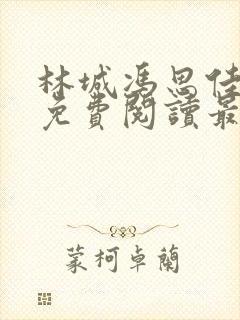 林城馮思佳
免費閱讀最
蒙柯卓蘭